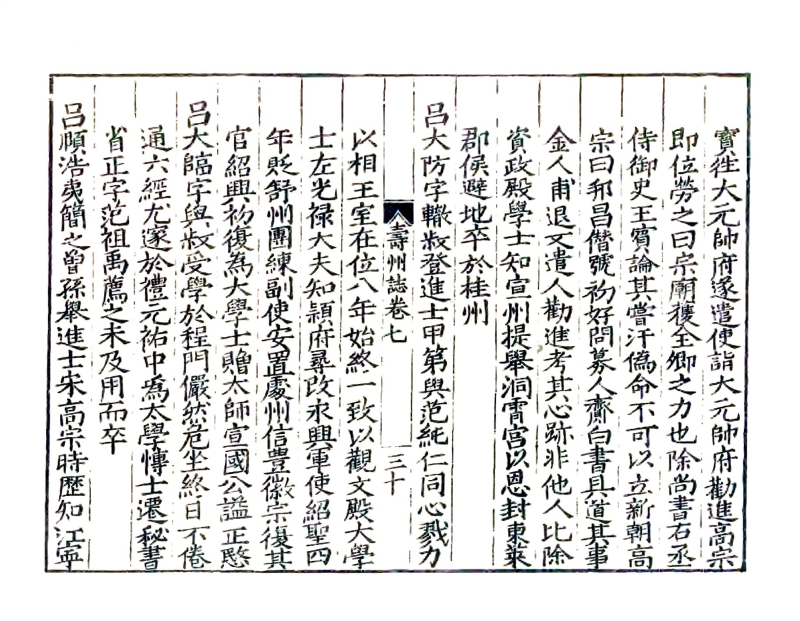 寳徃大元帥府遂遣使詣大元帥府勸進高宗
即位勞之曰宗廟獲全卿之力也除尚書右丞
侍御史王賓論其嘗汙僞命不可以立新朝高
宗曰邦昌僭號初好問募人齎白書具道其事
金人甫退又遣人勸進考其心跡非他人比除
資政殿學士知宣州提舉洞霄宮以恩封東萊
郡侯避地卒於桂州
呂大防字轍叔登進士甲第與范純仁同心戮力
壽州誌卷七
三十
以相王室在位八年始終一致以觀文殿大學
士左光禄大夫知頴府尋改永興軍使紹聖四
年貶舒州團練副使安置慶州信豊徽宗復其
官紹興初復為大學士贈太師宣國公謚正愍
呂大臨字與叔受學於程門儼然危坐終日不倦
通六經尤邃於禮元祐中爲太學博士遷秘書
省正字范祖禹薦之未及用而卒
呂頤浩夷簡之曽孫舉進士宋高宗時歷知江寧